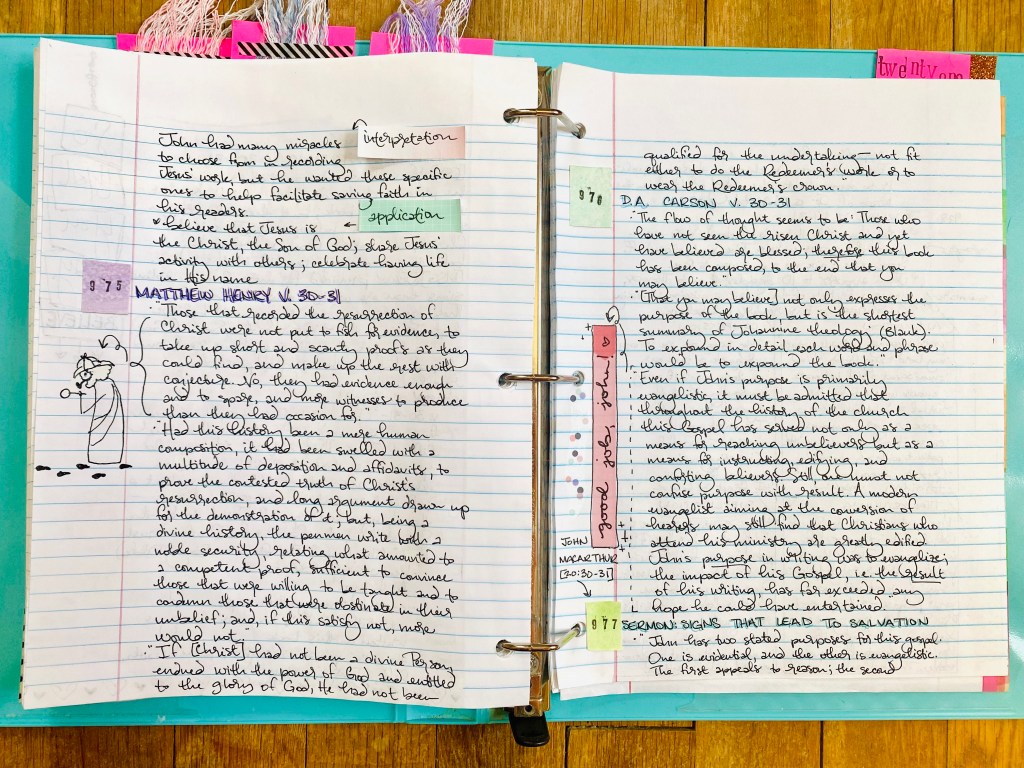 twenty one
John had many miracles
interpretation
to choose from in recording
Jesus' work, but he wanted these specific
ones to help facilitate saving faith in
his readers.
application
* believe that Jesus is
the Christ, the Son of God; share Jesus'
activity with others; celebrate having life
in His name
975
MATTHEW HENRY V. 30-31
"Those that recorded the resurrection of
Christ were not put to fish for evidence, to
take up short and scanty proofs as they
could find, and make up the rest with
conjecture. No, they had evidence enough
and to spare, and more witnesses to produce
than they had occasion for."
"Had this history been a mere human
composition, it had been swelled with a
multitude of deposition and affidavits, to
prove the contested truth of Christ's
resurrection, and long argument drawn up
for the demonstration of it; but, being a
divine history, the penmen write with a
noble security, relating what amounted to
a competent proof, sufficient to convince
those that were willing to be taught and to
condemn those that were obstinate in their
unbelief; and, if this satisfy not, more
would not."
"If [Christ] had not been a divine Person,
endued with the power of God and entitled
to the glory of God, He had not been
qualified for the undertaking— not fit
either to do the Redeemer's work or to
wear the Redeemer's crown."
976
D.A. CARSON V. 30-31
"The flow of thought seems to be: Those who
have not seen the risen Christ and yet
have believed are blessed; therefore this book
has been composed, to the end that you
may believe."
"[That you may believe] not only expresses the
purpose of the book, but is the shortest
summary of Johannine theology; (Blauk).
To expound in detail each word and phrase
would be to expound the book."
"Even if John's purpose is primarily
evangelistic, it must be admitted that
throughout the history of the church
this Gospel has served not only as a
means for reaching unbelievers but as a
means for instructing, edifying, and
comforting believers. Still one must not
confuse purpose with result. A modern
evangelist aiming at the conversion of
hearers may still find that Christians who
attend his ministry are greatly edified.
John's purpose in writing was to evangelize;
the impact of his Gospel, i.e. the result
of his writing, has far exceeded any
hope he could have entertained.
good job, John!
JOHN
MACARTHUR
[20:30-31]
977
SERMON: SIGNS THAT LEAD TO SALVATION
"John has two stated purposes for this gospel.
One is evidential, and the other is evangelistic.
The first appeals to reason; the second